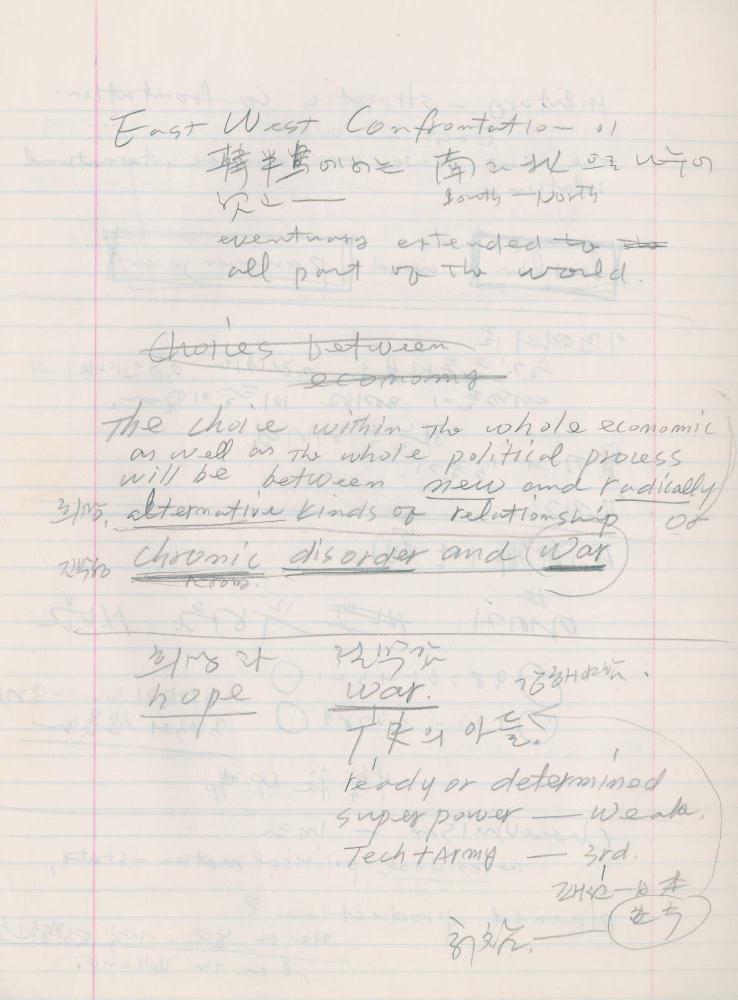 East West Confrontation 이
韓半島에서는 南과 北 으로 나누어
South – North
eventuary extended to the
all part of the world.
Choices between
economy
The choice within the whole economic
as well as the whole political process
will be between new and radically
희망, alternative kinds of relationship or
절망 chronic disorder and War
희망과 절망감
hope war.
의 아들.
ready or determined
super power — weak.
Tech + Army — 3rd.